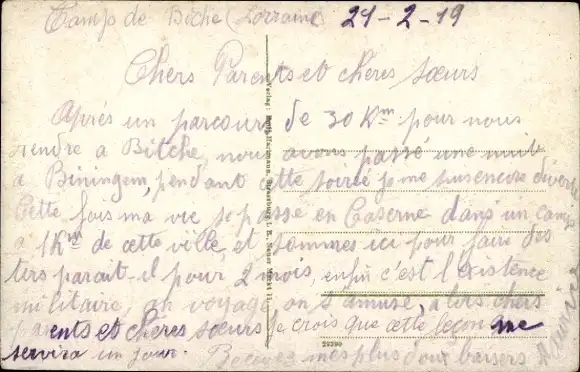 Camp de Biche (Lorraine) 21-2-19
Chers Parents et cheres sœurs
Après un parcours de 30 Km pour nous
rendre a Bitche, nous avons passé une nuit
a Biningem, pendant cette soirée je me suis encore diverti
Cette fois ma vie se passe en Caserne dans un camp
a 1Km de cette ville, et sommes ici pour faire des
tirs parait-il pour 2 mois, enfin c'est l'existence
militaire, on voyage on s'amuse, alors chers
parents et chères sœurs je crois que cette leçon me
servira un jour. Recevez mes plus doux baisers
Verlag: Hartmann, Strassburg i. E., Neuer Markt 11.